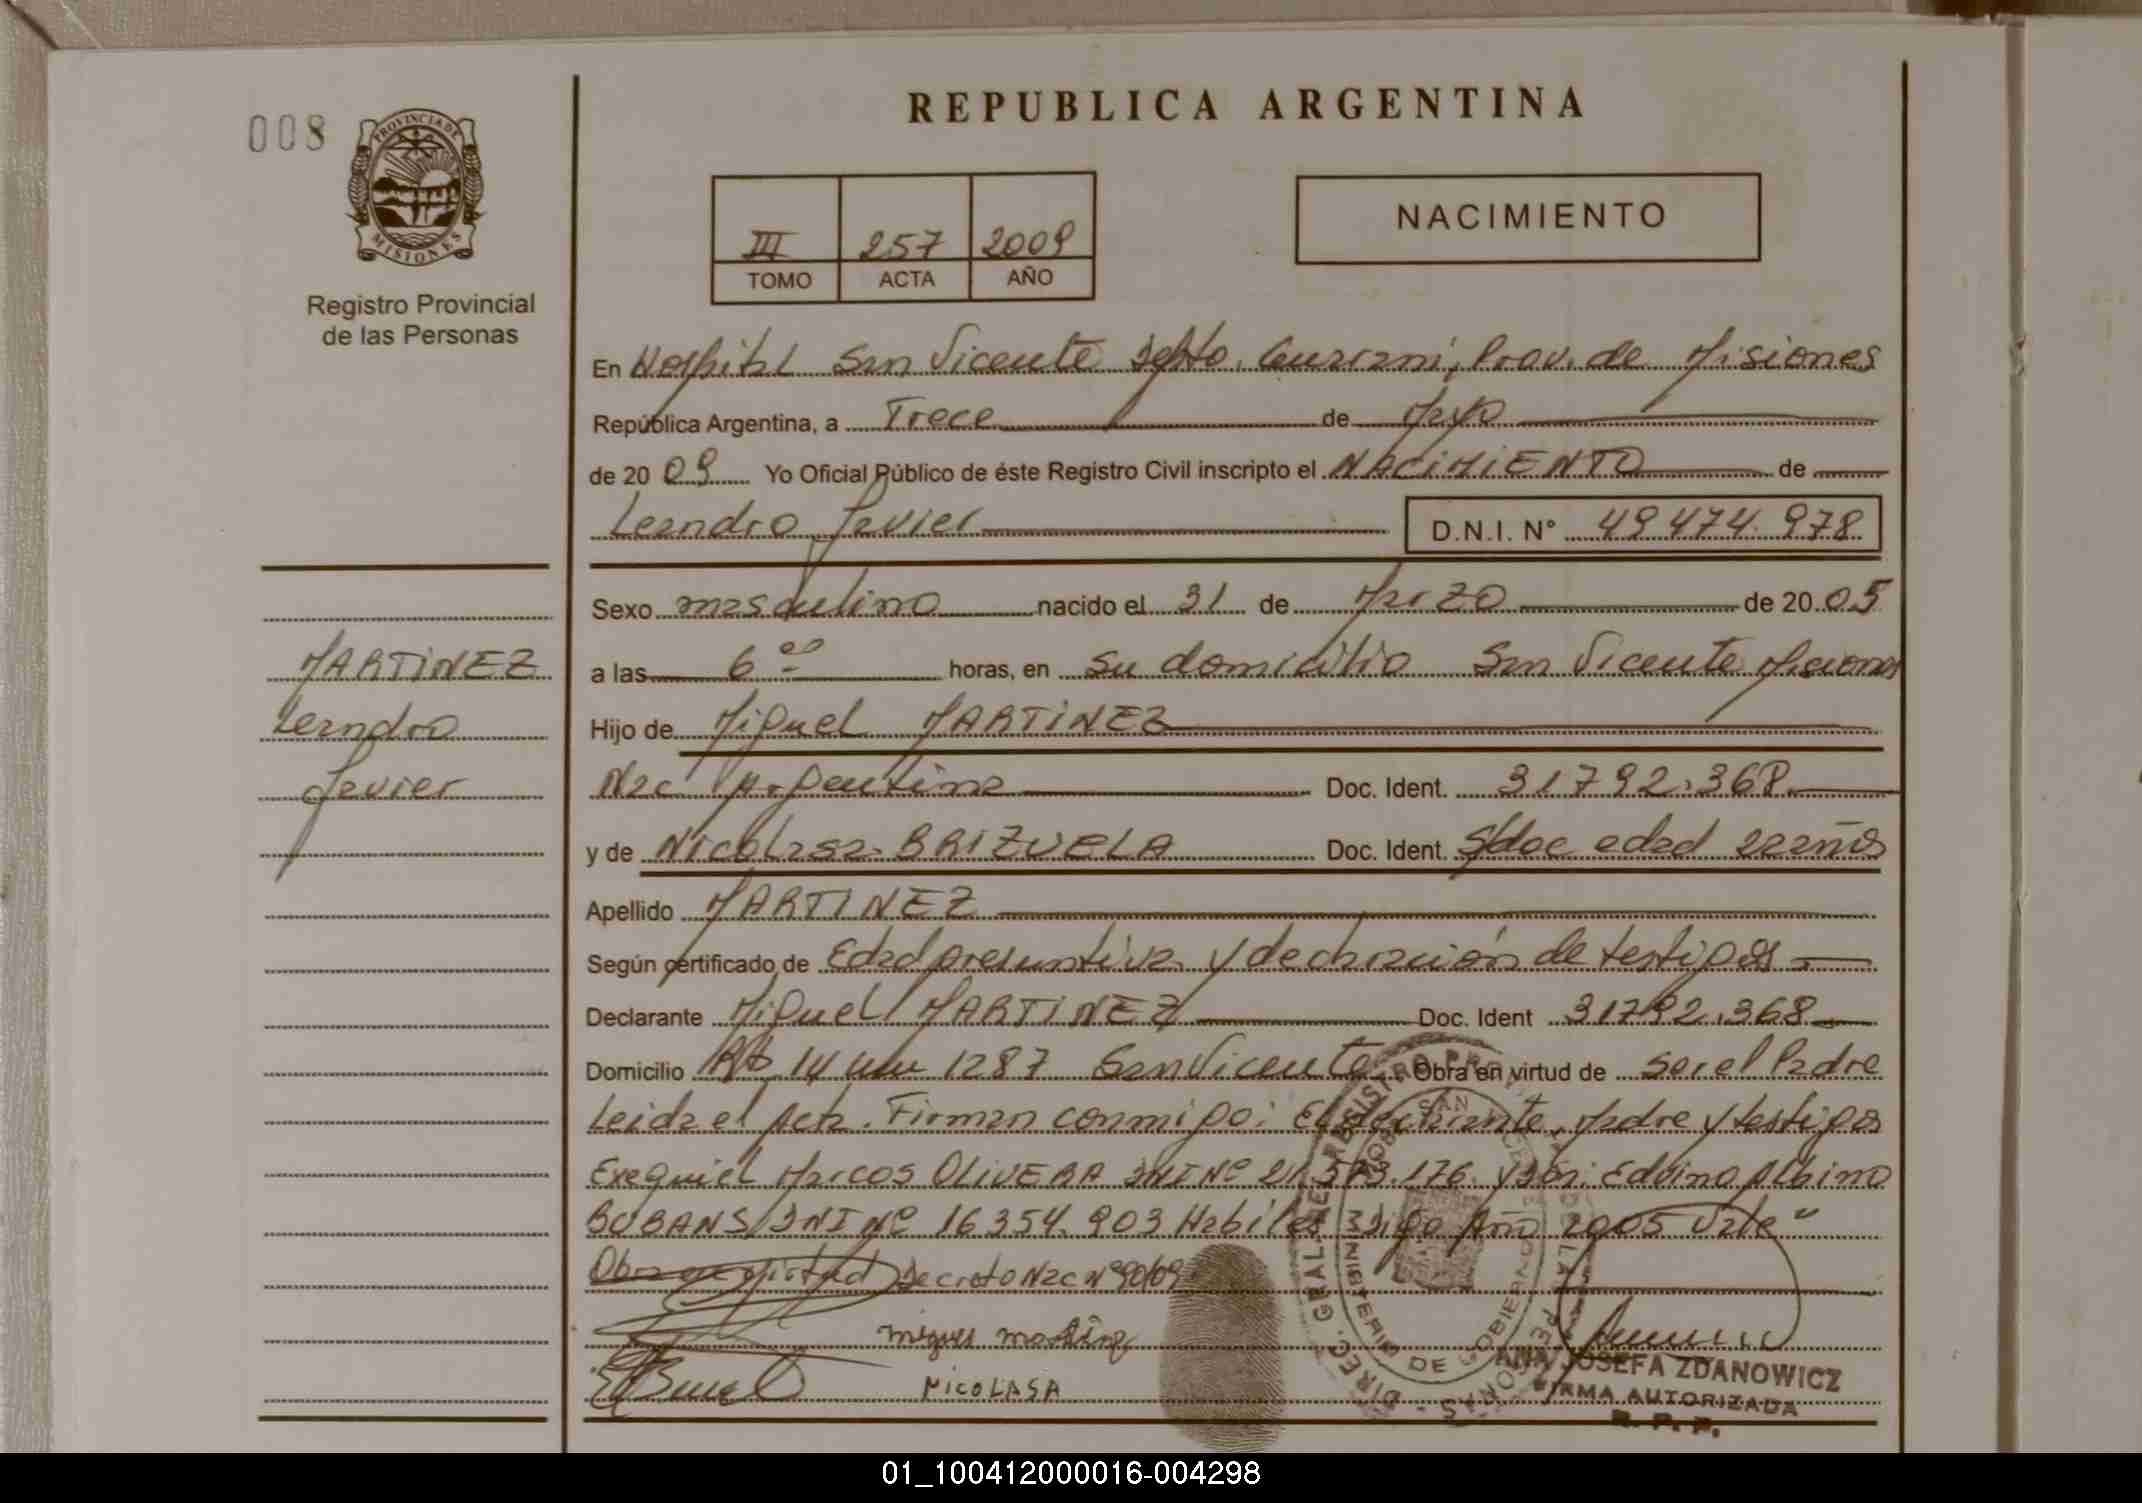 008
PROVINCIA DE
MISIONES
Registro Provincial
de las Personas
REPUBLICA ARGENTINA
III 257 2009
TOMO ACTA AÑO
NACIMIENTO
En Hospital San Vicente Depto. Guarani, Prov. de Misiones
República Argentina, a Trece de Mayo
de 2009 Yo Oficial Público de éste Registro Civil inscripto el NACIMIENTO de
Leandro Javier D.N.I. Nº 49474.978
Sexo masculino nacido el 31 de Marzo de 2005
a las 6 00 horas, en su domicilio San Vicente Misiones
Hijo de Miguel MARTINEZ
Nac Argentina Doc. Ident. 31792.368
y de Nicolasa BRIZUELA Doc. Ident. S/doc edad 22 años
Apellido MARTINEZ
Según certificado de Edad presuntiva y declaración de testigos
Declarante Miguel MARTINEZ Doc. Ident 31792.368
Domicilio 14 1287 San Vicente Obra en virtud de ser el Padre
Leida el Acta. Firman conmigo: El declarante, Madre y testigos
Exequiel Marcos OLIVERA DNI Nº 21.573.176. y Sr: Edvino Albino
BUBANS DNI Nº 16354.903 Habiles Digo Año 2005 Vale"
Obra en virtud Decreto Nac Nº 90/09
miguel martinez
NICOLASA
MARTINEZ
Leandro
Javier
DIREC. GRAL. DE REGISTRO
MINISTERIO DE GOBIERNO
SAN
ANA JOSEFA ZDANOWICZ
FIRMA AUTORIZADA
R. P. P.
01_100412000016-004298